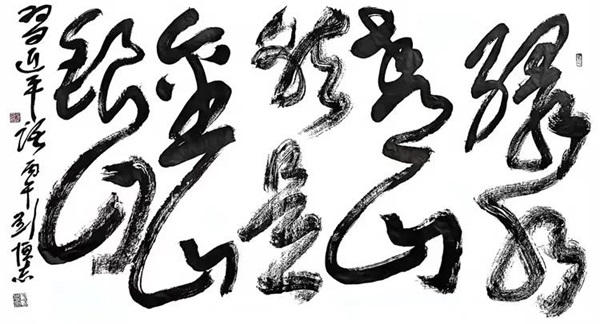 绿水
青山
就是
金山
银山
習近平语 丙午刘